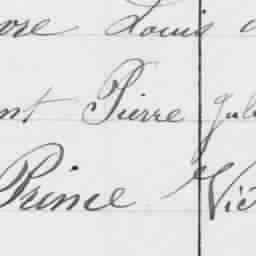 ore Louis
nt Pierre Jul
Prince Vic